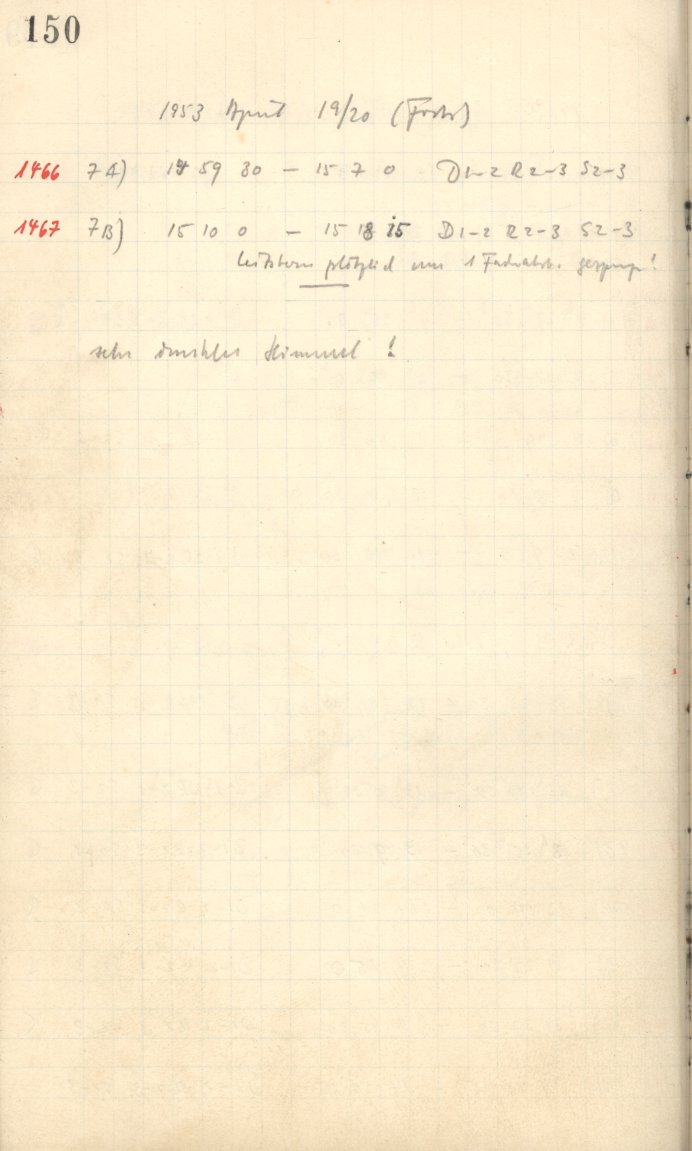 150
1953 April 19/20 (Forts)
1466 7A) 14 59 30 – 15 7 0 D1-2 R2-3 S2-3
1467 7B) 15 10 0 – 15 18 15 D1-2 R2-3 S2-3
Leitstern plötzlich um 1 Fadenabst.
sehr dunkler Himmel !